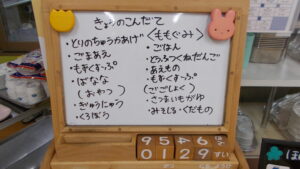 きょうのこんだて
・とりのちゅうかあげ
・ごまあえ
・もずくスープ
・ばなな
(おやつ)
・ぎゅうにゅう
・くろぼう
<ももぐみ>
・ごはん
・とうふつくねだんご
・あえもの
・もずくスープ
(ごごしょく)
・さつまいもがゆ
・みそしる・くだもの
9 5 4 6
0 1 2 9 すい